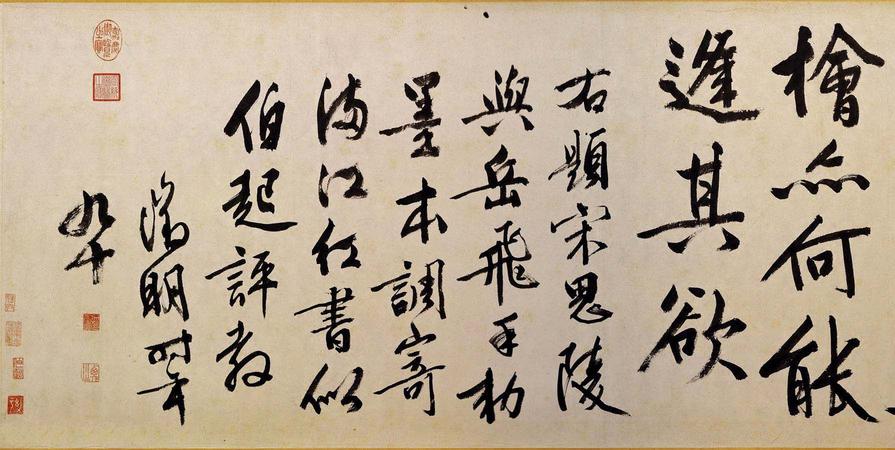 檜亦何能
逢其欲
右題宋思陵
與岳飛手勑
墨本調寄
滿江紅書似
伯起評教
徵明時年
九十